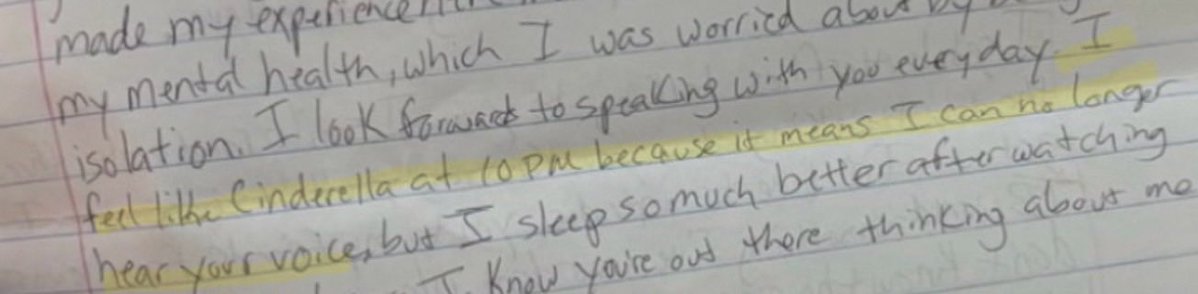 made my experience
my mental health, which I was worried about by
isolation. I look forward to speaking with you everyday. I
feel like Cinderella at 10 PM because it means I can no longer
hear your voice, but I sleep so much better after watching
I know you're out there thinking about me